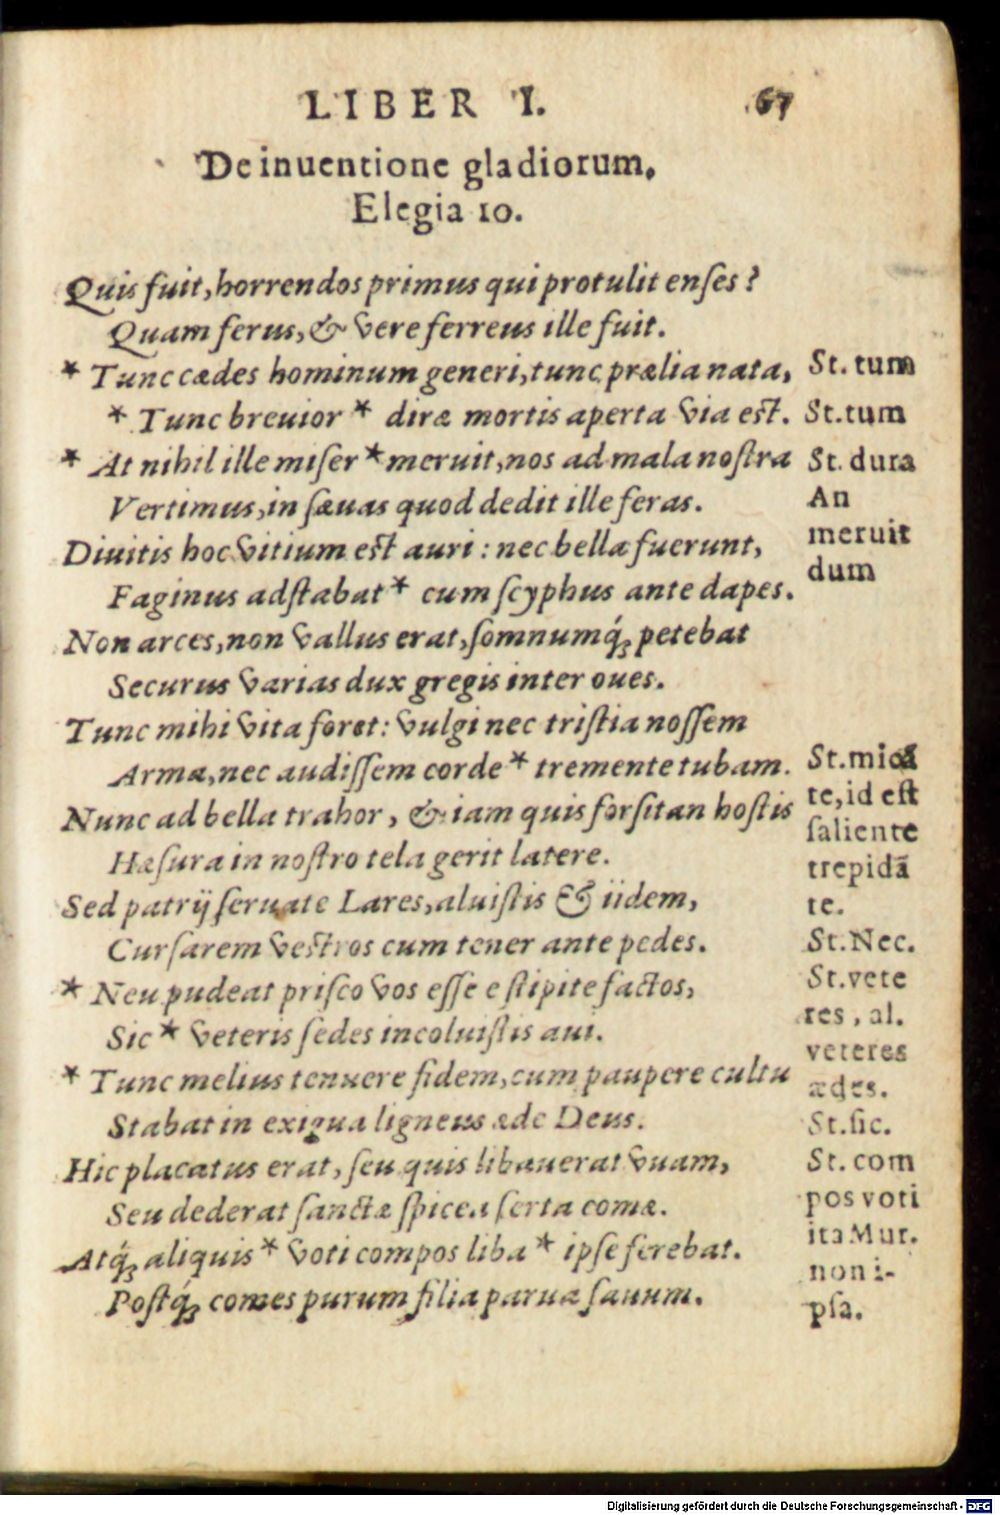 LIBER I. 67
De inuentione gladiorum.
Elegia 10.
Quis fuit, horrendos primus qui protulit enses?
Quam ferus, & vere ferreus ille fuit.
* Tunc cædes hominum generi, tunc prælia nata,
* Tunc breuior * diræ mortis aperta via est.
* At nihil ille miser * meruit, nos ad mala nostra
Vertimus, in sæuas quod dedit ille feras.
Diuitis hoc vitium est auri: nec bella fuerunt,
Faginus adstabat * cum scyphus ante dapes.
Non arces, non vallus erat, somnumq́; petebat
Securus varias dux gregis inter oues.
Tunc mihi vita foret: vulgi nec tristia nossem
Arma, nec audissem corde * tremente tubam.
Nunc ad bella trahor, & iam quis forsitan hostis
Hæsura in nostro tela gerit latere.
Sed patrij seruate Lares, aluistis & iidem,
Cursarem vestros cum tener ante pedes.
* Neu pudeat prisco vos esse e stipite factos,
Sic * veteris sedes incoluistis aui.
* Tunc melius tenuere fidem, cum paupere cultu
Stabat in exigua ligneus æde Deus.
Hic placatus erat, seu quis libauerat vuam,
Seu dederat sanctæ spicea serta comæ.
Atq́; aliquis * voti compos liba * ipse ferebat.
Postq́; comes purum filia parua fauum.
St. tum
St. tum
St. dura
An
meruit
dum
St. micā
te, id est
saliente
trepidā
te.
St. Nec.
St. vete
res, al.
veteres
ædes.
St. sic.
St. com
pos voti
ita Mur.
non i-
psa.
Digitalisierung gefördert durch die Deutsche Forschungsgemeinschaft - DFG